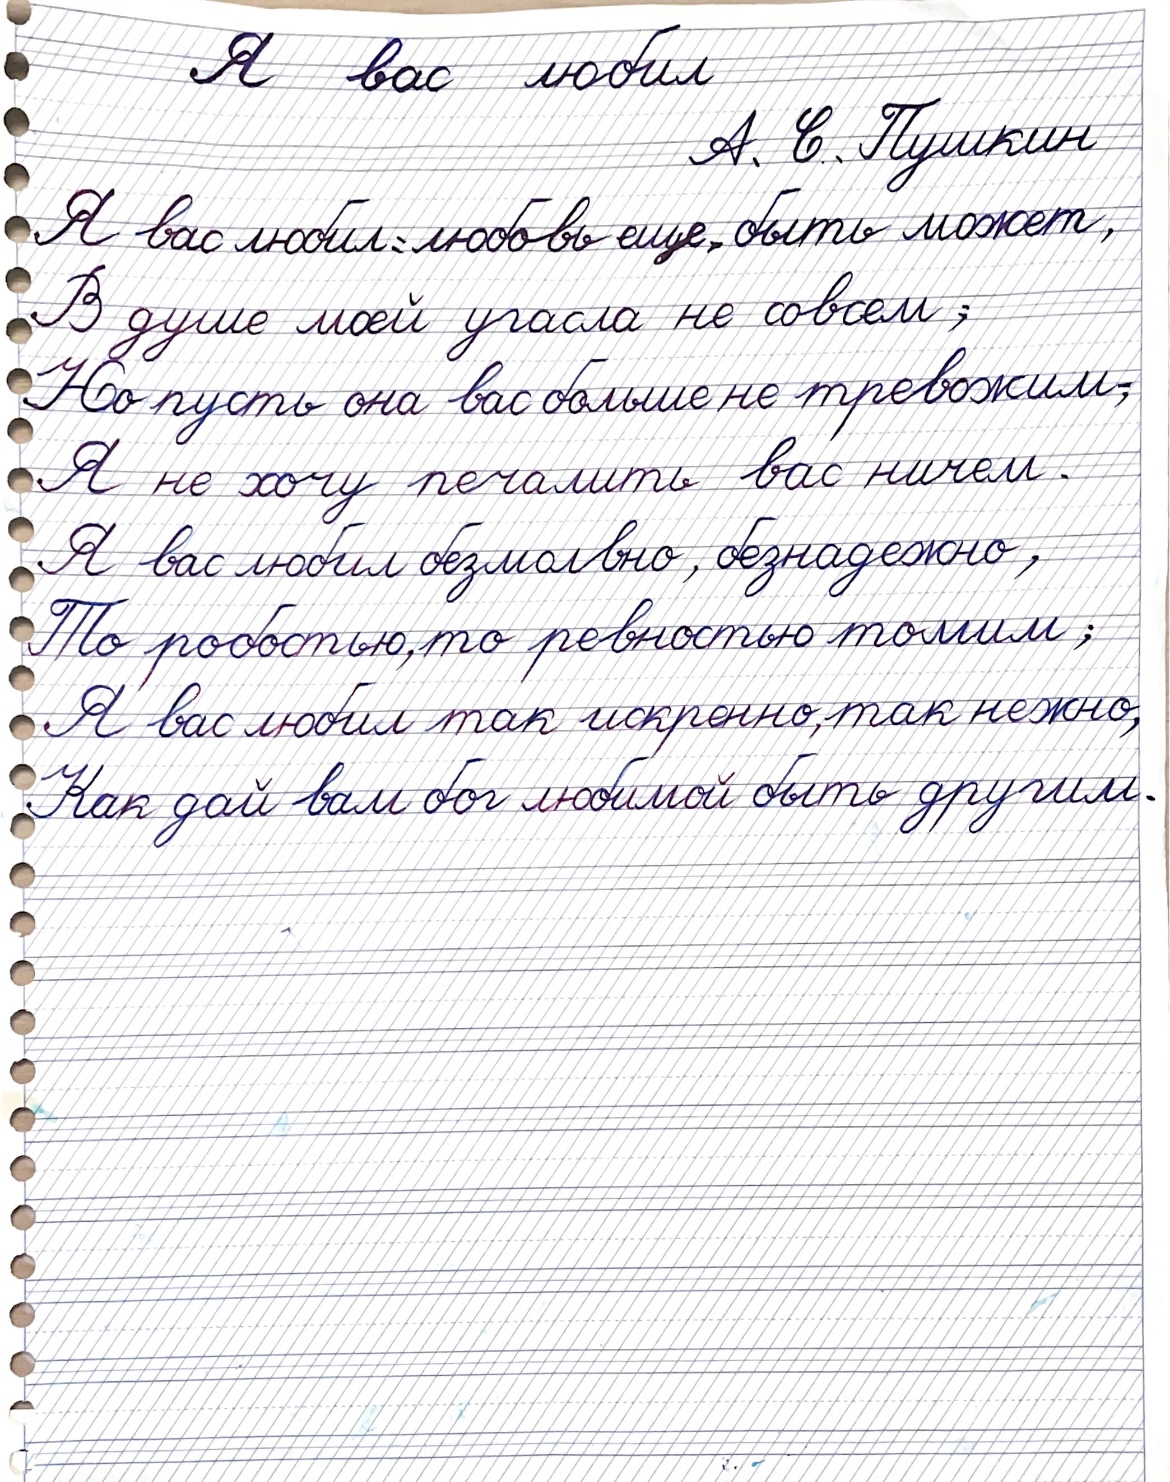 Я вас любил
А. С. Пушкин
Я вас любил: любовь еще, быть может,
В душе моей угасла не совсем;
Но пусть она вас больше не тревожим;
Я не хочу печалить вас ничем.
Я вас любил безмолвно, безнадежно,
То робостью, то ревностью томим;
Я вас любил так искренно, так нежно,
Как дай вам бог любимой быть другим.